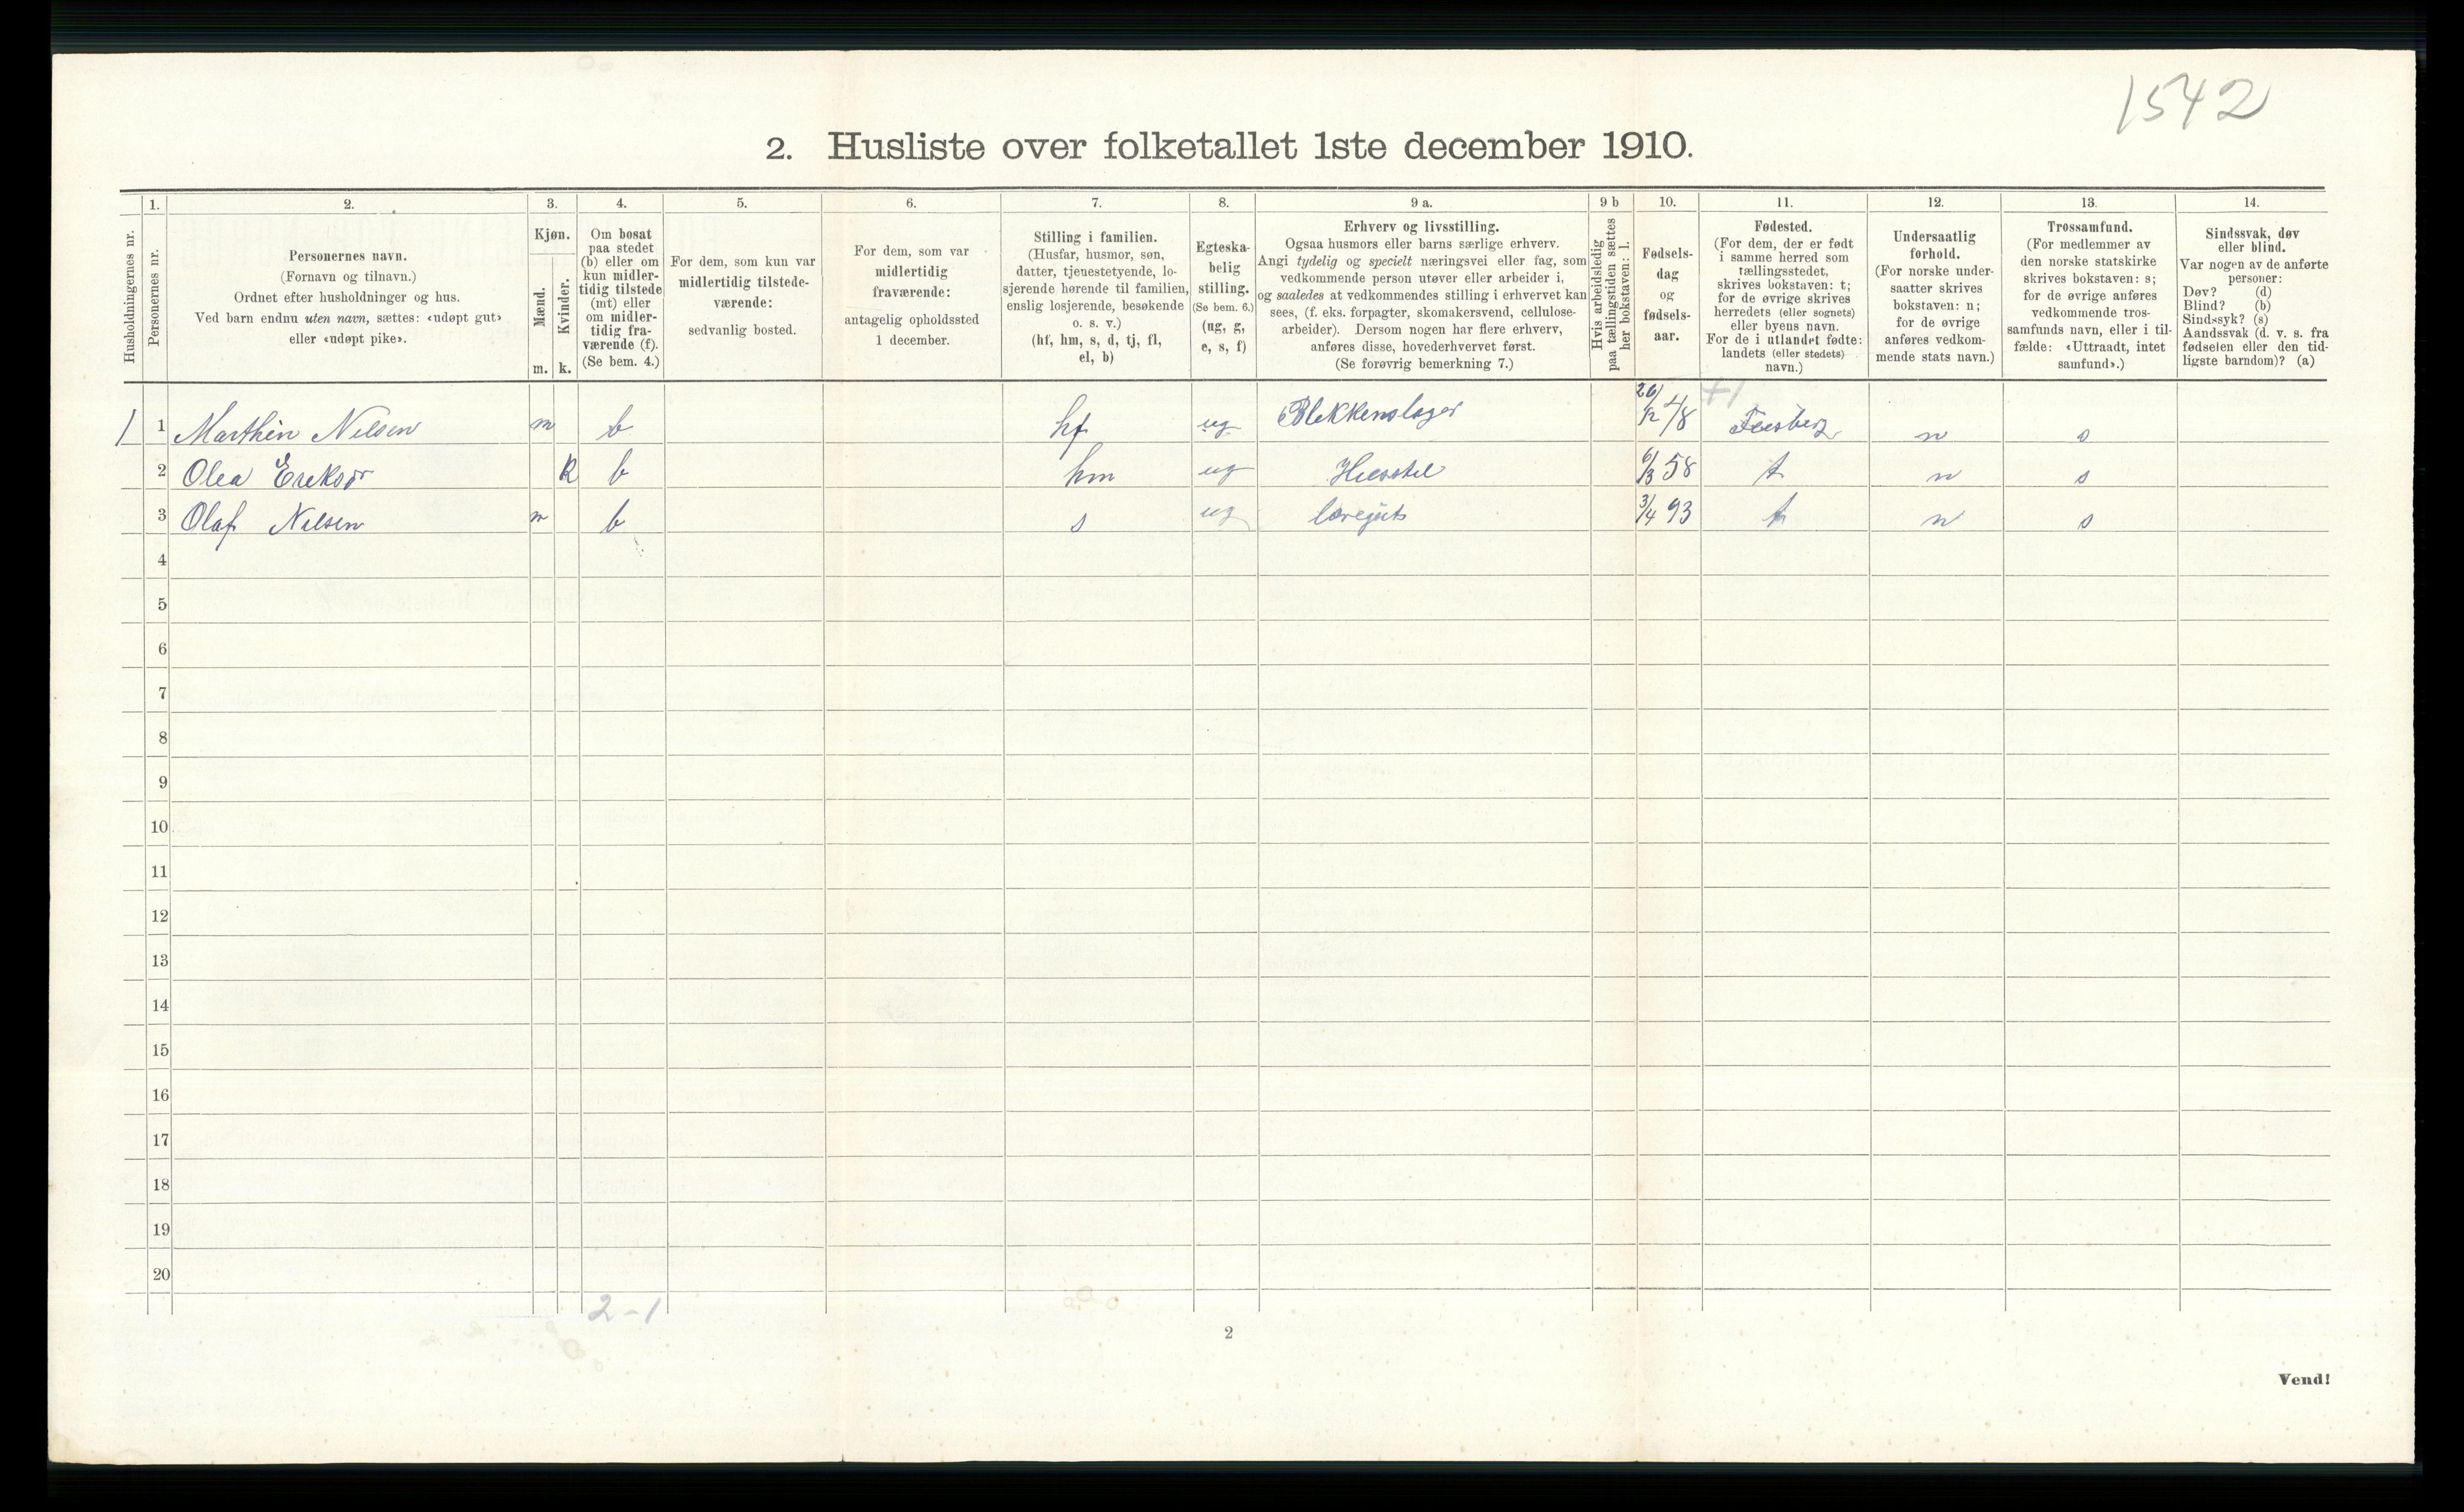 1542
2. Husliste over folketallet 1ste december 1910.
Husholdningernes nr.
1.
Personernes nr.
2.
Personernes navn.
(Fornavn og tilnavn.)
Ordnet efter husholdninger og hus.
Ved barn endnu uten navn, sættes: «udøpt gut»
eller «udøpt pike».
3.
Kjøn.
Mænd.
Kvinder.
m. k.
4.
Om bosat
paa stedet
(b) eller om
kun midler-
tidig tilstede
(mt) eller
om midler-
tidig fra-
værende (f).
(Se bem. 4.)
5.
For dem, som kun var
midlertidig tilstede-
værende:
sedvanlig bosted.
6.
For dem, som var
midlertidig
fraværende:
antagelig opholdssted
1 december.
7.
Stilling i familien.
(Husfar, husmor, søn,
datter, tjenestetyende, lo-
sjerende hørende til familien,
enslig losjerende, besøkende
o. s. v.)
(hf, hm, s, d, tj, fl,
el, b)
8.
Egteska-
belig
stilling.
(Se bem. 6.)
(ug, g,
e, s, f)
9 a.
Erhverv og livsstilling.
Ogsaa husmors eller barns særlige erhverv.
Angi tydelig og specielt næringsvei eller fag, som
vedkommende person utøver eller arbeider i,
og saaledes at vedkommendes stilling i erhvervet kan
sees, (f. eks. forpagter, skomakersvend, cellulose-
arbeider). Dersom nogen har flere erhverv,
anføres disse, hovederhvervet først.
(Se forøvrig bemerkning 7.)
9 b
Hvis arbeidsledig
paa tællingstiden sættes
her bokstaven: l.
10.
Fødsels-
dag
og
fødsels-
aar.
11.
Fødested.
(For dem, der er født
i samme herred som
tællingsstedet,
skrives bokstaven: t;
for de øvrige skrives
herredets (eller sognets)
eller byens navn.
For de i utlandet fødte:
landets (eller stedets)
navn.)
12.
Undersaatlig
forhold.
(For norske under-
saatter skrives
bokstaven: n;
for de øvrige
anføres vedkom-
mende stats navn.)
13.
Trossamfund.
(For medlemmer av
den norske statskirke
skrives bokstaven: s;
for de øvrige anføres
vedkommende tros-
samfunds navn, eller i til-
fælde: «Uttraadt, intet
samfund».)
14.
Sindssvak, døv
eller blind.
Var nogen av de anførte
personer:
Døv? (d)
Blind? (b)
Sindssyk? (s)
Aandssvak (d. v. s. fra
fødselen eller den tid-
ligste barndom)? (a)
1 1 Marthin Nilsen m b hf ug Blekkenslager n s
2 Olea k b hm ug Husstel 6/3 58 t n s
3 Olaf Nilsen m b s ug læregut 3/4 93 t n s
4
5
6
7
8
9
10
11
12
13
14
15
16
17
18
19
20
2-1
2
Vend!